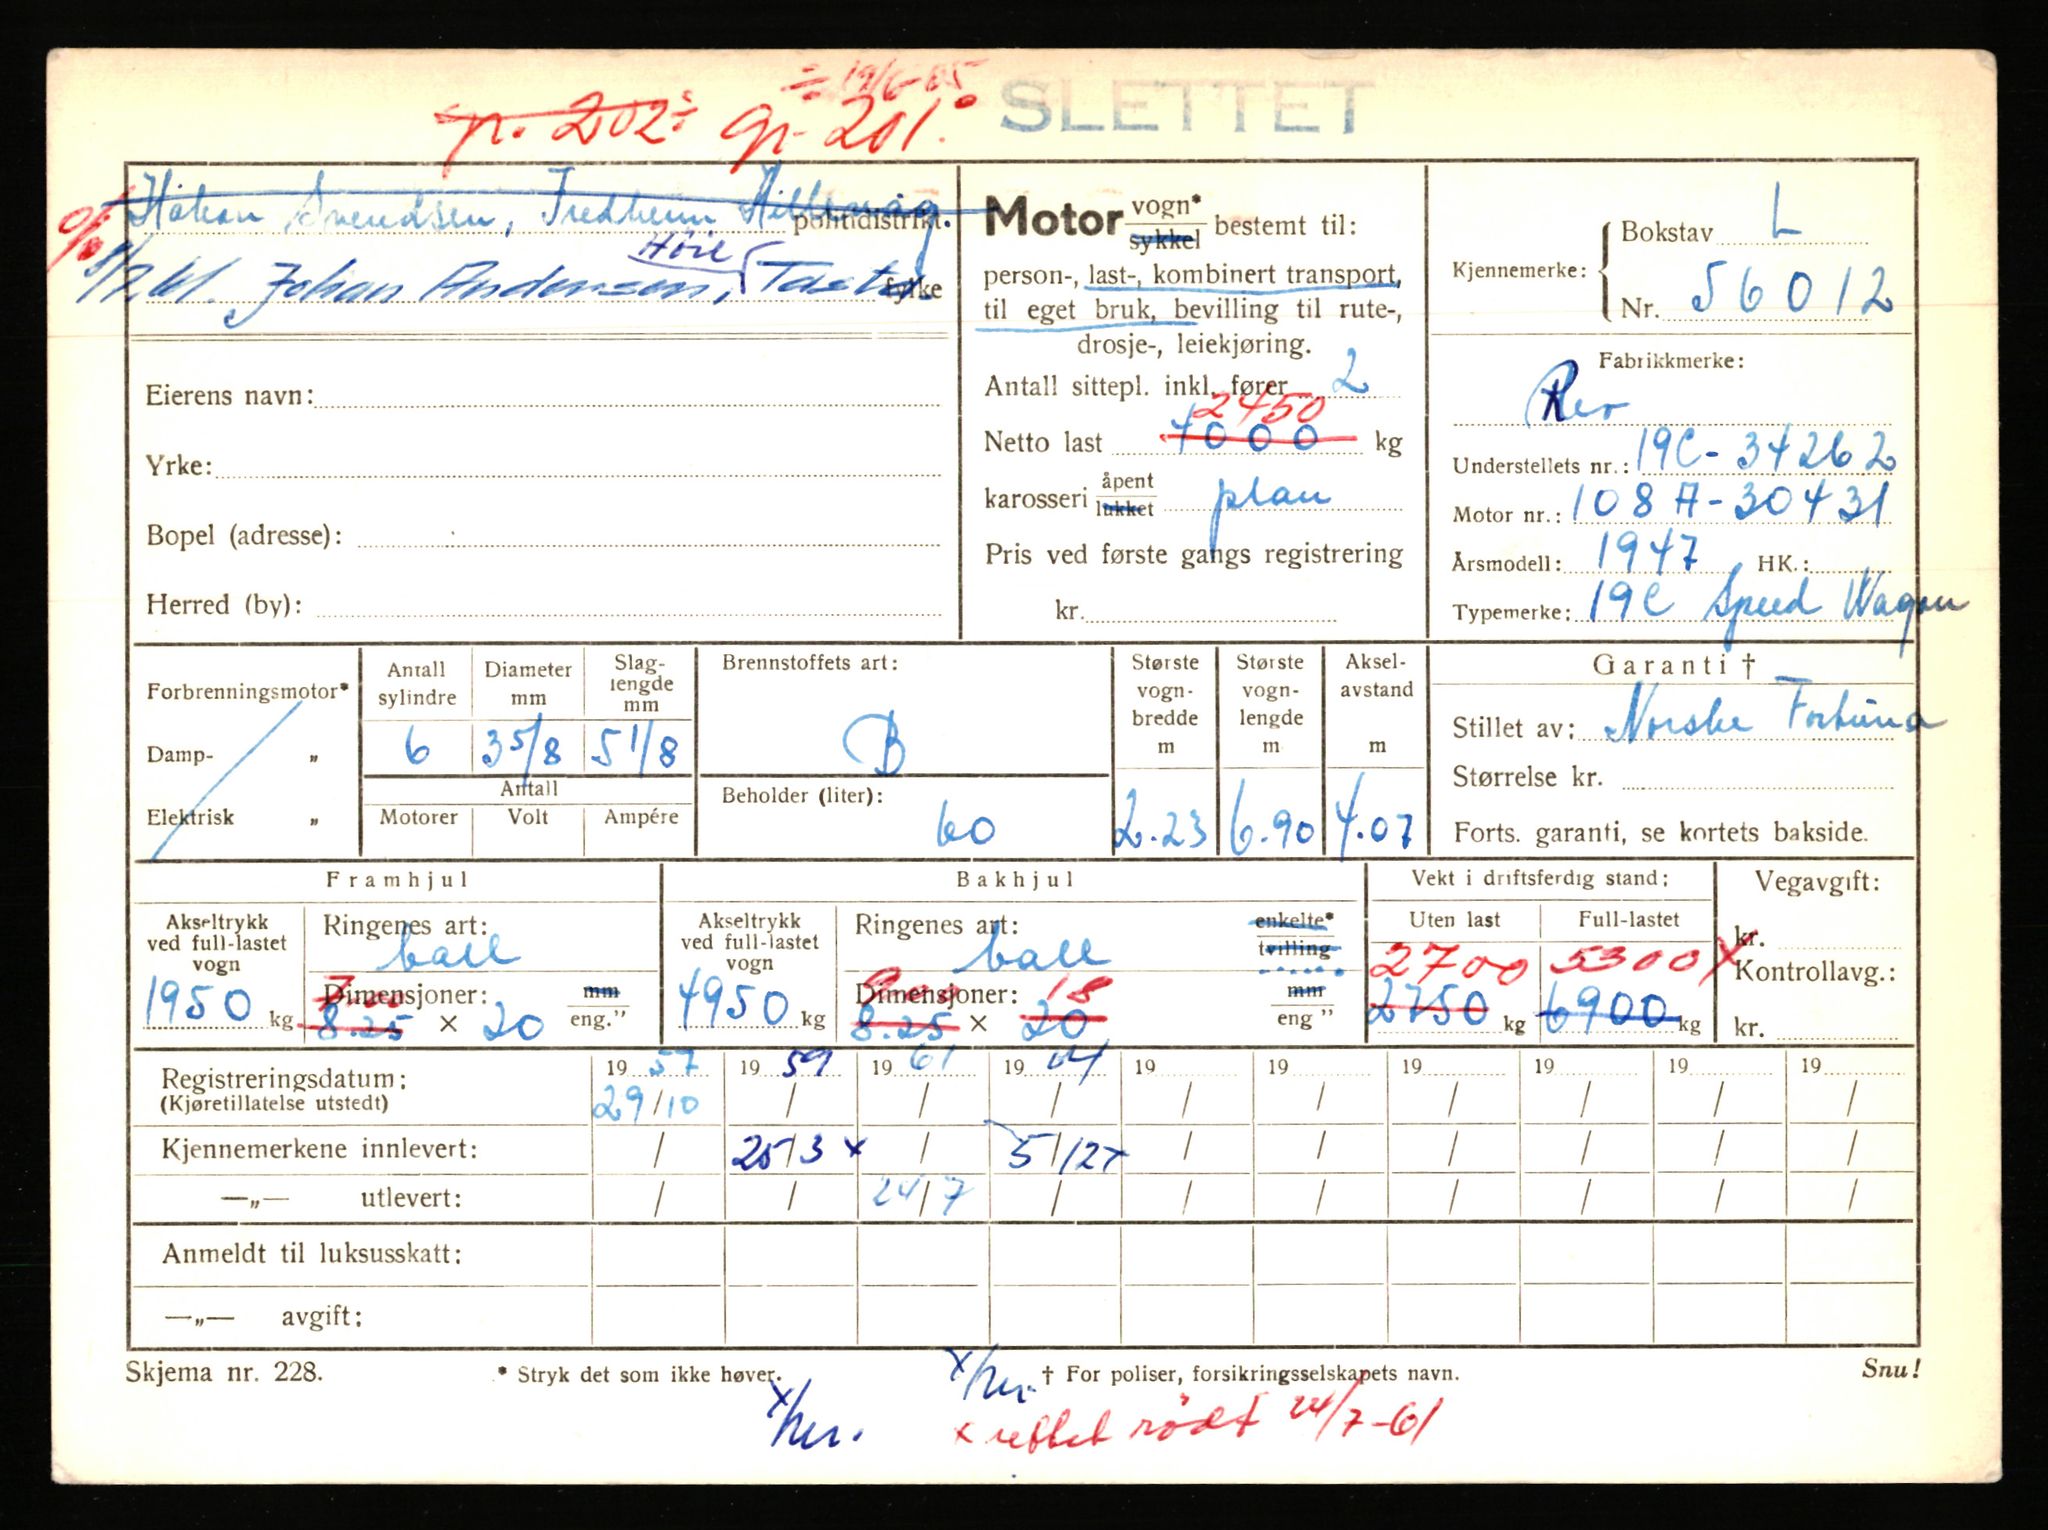 ÷ 19/6-65
gr. 202 ÷ gr. 201.
SLETTET
Håkan Svendsen, Fredheim Hillevåg politidistrikt.
Høie
Johan Andersen, Tasta. fylke
Eierens navn:
Yrke:
Bopel (adresse):
Herred (by):
Motor vogn* sykkel bestemt til:
person-, last-, kombinert transport,
til eget bruk, bevilling til rute-,
drosje-, leiekjøring.
Antall sittepl. inkl. fører 2
2450
Netto last 4000 kg
karosseri åpent lukket plan
Pris ved første gangs registrering
kr.
Kjennemerke: Bokstav L
Nr. 56012
Fabrikkmerke:
Reo
Understellets nr.: 19C-34262
Motor nr.: 108A-30431
Årsmodell: 1947 HK.:
Typemerke: 19C Speed Wagon
Forbrenningsmotor*
Damp- „
Elektrisk „
Antall sylindre 6
Diameter mm 3 5/8
Slag-lengde mm 5 1/8
Antall
Motorer Volt Ampére
Brennstoffets art:
B
Beholder (liter):
60
Største vogn-bredde m 2.23
Største vogn-lengde m 6.90
Aksel-avstand m 4.07
Garanti †
Stillet av: Norske Fortuna
Størrelse kr.
Forts. garanti, se kortets bakside.
Framhjul
Akseltrykk ved full-lastet vogn
1950 kg
Ringenes art:
ball
7.00
Dimensjoner: mm
8.25 × 20 eng.”
Bakhjul
Akseltrykk ved full-lastet vogn
4950 kg
Ringenes art: enkelte*
ball tvilling
9.00 18
Dimensjoner: mm
8.25 × 20 eng ”
Vekt i driftsferdig stand:
Uten last Full-lastet
2700 5300 x
2750 kg 6900 kg
Vegavgift:
kr.
Kontrollavg.:
kr.
19 57 19 59 19 61 19 64 19 19 19 19 19 19
Registreringsdatum: 29/10 / / / / / / / / /
(Kjøretillatelse utstedt)
Kjennemerkene innlevert: / 25/3 x / 5/12 x / / / / / /
—„— utlevert: / / 24/7 / / / / / / /
Anmeldt til luksusskatt:
—„— avgift:
Skjema nr. 228. * Stryk det som ikke høver. † For poliser, forsikringsselskapets navn. Snu!
x/her. x/her.
x rettet rødt 24/7-61